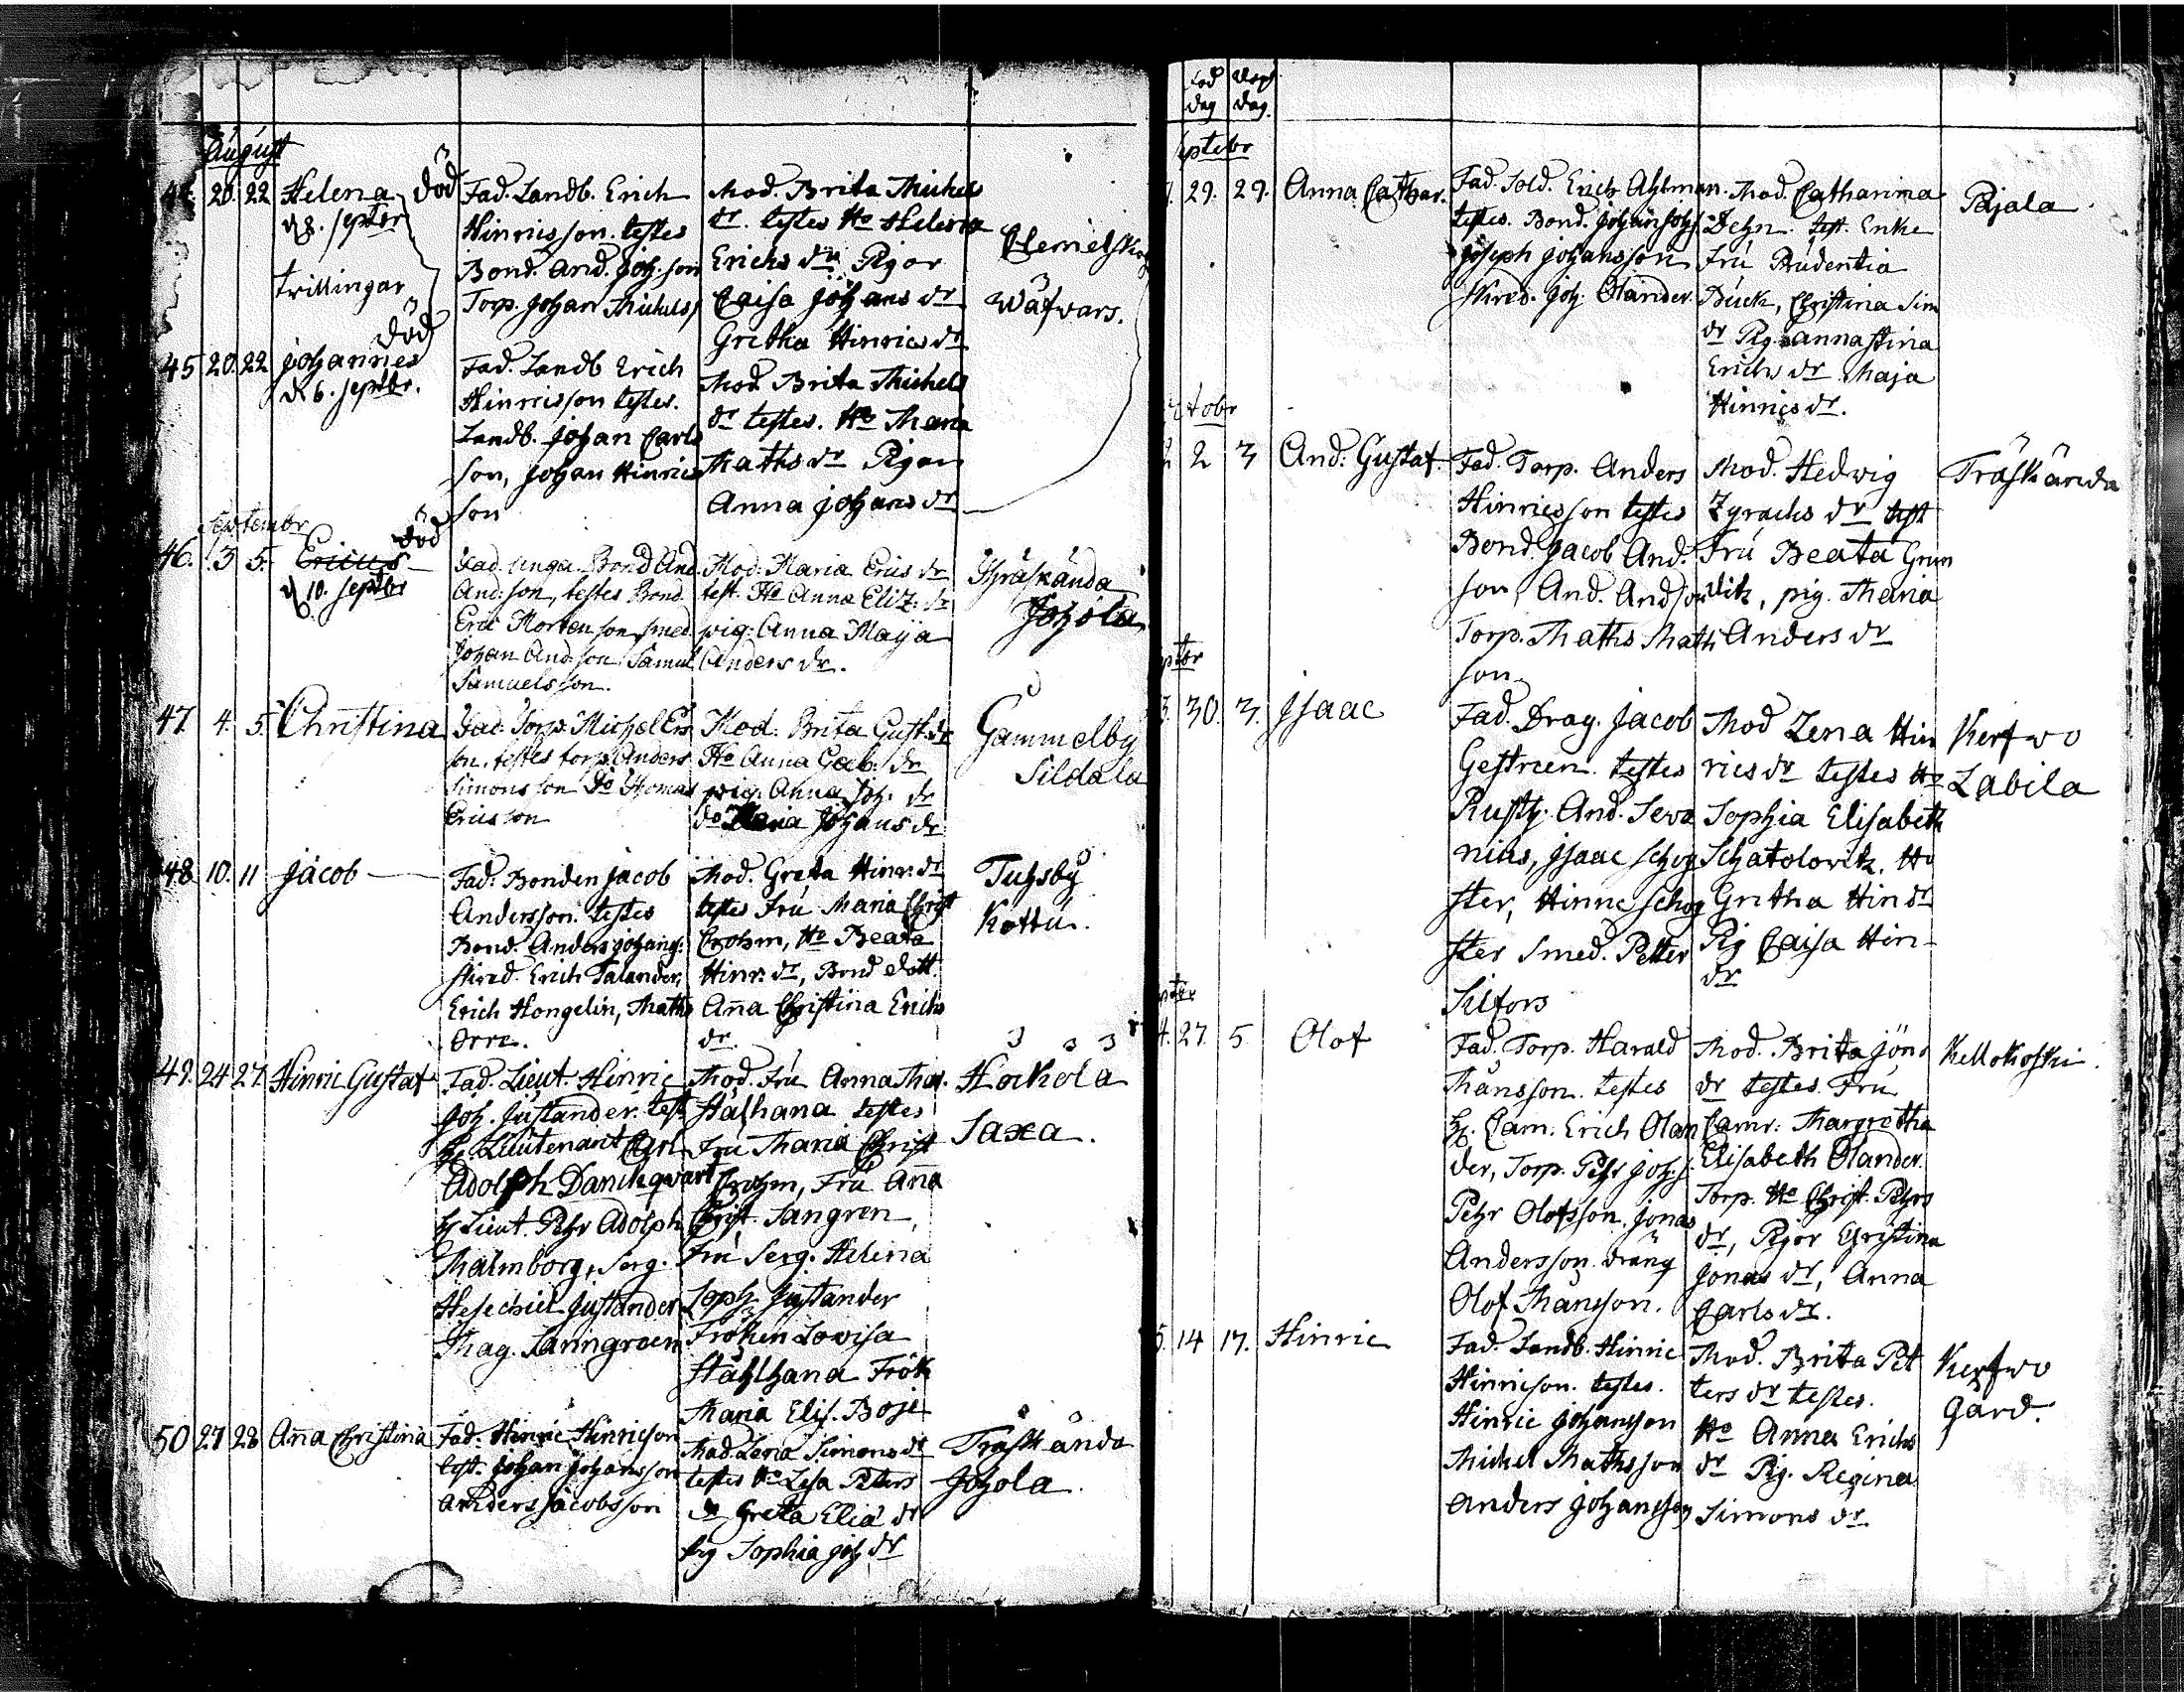 August
44. 20. 22 Helena död
d 8. septbr
trillingar
Fad. Landb. Erich
Hinricsson. testes
Bond. And. Joh. son
Torp. Johan Michels
Mod. Brita Michels
dr. testes Ho Helena
Erichs dr Pigor
Caisa Johans dr
Gretha Hinrics dr
Wäfvars.
död
45 20. 22 Johannes
d 6. septbr.
Fad. Landb Erich
Hinricsson testes.
Landb. Johan Carls
son, Johan Hinrics
son
Mod. Brita Michels
dr testes. Ho Maria
Maths dr Pigan
Anna Johans dr
Septembr
död
46. 3 5. Ericus
d 10. septbr
Fad. unga Bond And.
And. son, testes Bond
Eric Morten son, smed
Johan And. son Samul
Samuelsson.
Mod. Maria Erics dr
test. Ho Anna Eliz. dr
pig. Anna Maija
Anders dr.
Träskända
Johola
47 4. 5. Christina
Fad. Torp. Michel Ers
son. testes torp. Anders
Simons son Do Thomas
Erics son
Mod. Brita Gust. dr
Ho Anna Gab. dr
pig. Anna Joh. dr
do Maria Johans dr
Gammelby
Sildala
48 10. 11 Jacob
Fad. Bonden Jacob
Andersson. testes
Bond. Anders Johans:
skred. Erich Talander,
Erich Hongelin, Maths
Orre.
Mod. Greta Hinr. dr
testes Fru Maria Christ
Crohm, Ho Beata
Hinr. dr, Bond dott.
Anna Christina Erichs
dr.
Tuhsby
Kottu.
49. 24 27. Hinric Gustaf
Fad. Lieut. Hinric
Joh. Justander. test
H. Lieutenant Carl
Adolph Danckqwart
H Lieut. Pehr Adolph
Malmborg, Serg.
Hesechiel Justander
Mag. Lanngroen
Mod. Fru Anna Mar.
Stålhana testes
Fru Maria Christ
Crohm, Fru Anna
Christ. Sangren,
Fru Serg. Helena
Soph. Justander
Fröken Lovisa
Ståhlhana Frök
Maria Elis. Boije
Hockola
Saxa.
50 27 28 Anna Christina
Fad. Hinric Hinricson
test. Johan Johansson
Anders Jacobsson
Mod. Lena Simons dr
testes Ho Lisa Peters
dr Greta Elia dr
pig Sophia Joh dr
Träskända
Johola.
Föd Döpt
dag dag.
septebr
29. 29. Anna Cathar.
Fad. Sold. Erich Ahlman.
testes. Bond. Johan Johs
Joseph Johansson
skred. Joh. Olander.
Mod. Catharina
Dehn. test. Enke
Fru Prudentia
Buck, Christina Sim
dr Pig. Anna Stina
Erichs dr Maja
Hinrics dr.
Pajala
ctobr
2 3 And: Gustaf.
Fad. Torp. Anders
Hinricsson testes
Bond. Jacob And.
son, And. Andson
Torp. Maths Math
son.
Mod. Hedwig
Zyrachs dr test
Fru Beata Grun
ditz, pig. Maria
Anders dr
Träskända
ptbr
30. 3. Isaac
Fad. Drag. Jacob
Gestrien. testes
Rusth. And. Seve
nius, Isaac Schog
ster, Hinric Schog
ster Smed. Petter
Silfors
Mod Lena Hin
rics dr testes Ho
Sophia Elisabeth
Schatolovitz. Ho
Gretha Hin dr
Pig Caisa Hin-
dr
Kerfwo
Labila
ptbr
4. 27. 5 Olof
Fad. Torp. Harald
Månsson. testes
H. Cam: Erich Olan
der, Torp. Pehr Joh. s.
Pehr Olofsson, Jonas
Andersson dräng
Olof Månsson.
Mod. Brita Jöns
dr testes. Fru
Camr. Margretha
Elisabeth Olander.
Torp. Ho Christ. Pehrs
dr, Pigor Christina
Jonas dr, Anna
Carls dr.
Kellokoski.
5. 14 17. Hinric
Fad. Landb. Hinric
Hinricson. testes.
Hinric Johansson
Michel Mathsson
Anders Johansson
Mod. Brita Pet
ters dr testes.
Ho Anna Erichs
dr Pig. Regina
Simons dr
Kerfwo
Gård.